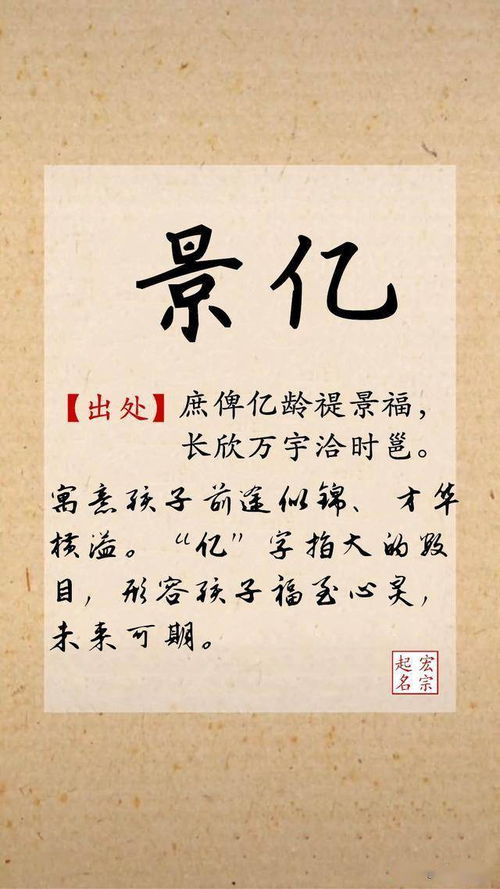 景亿
【出处】庶俾亿龄禔景福，
长欣万宇洽时邕。
寓意孩子前途似锦、才华
横溢。“亿”字指大的数
目，形容孩子福至心灵，
未来可期。
起宏
名宗